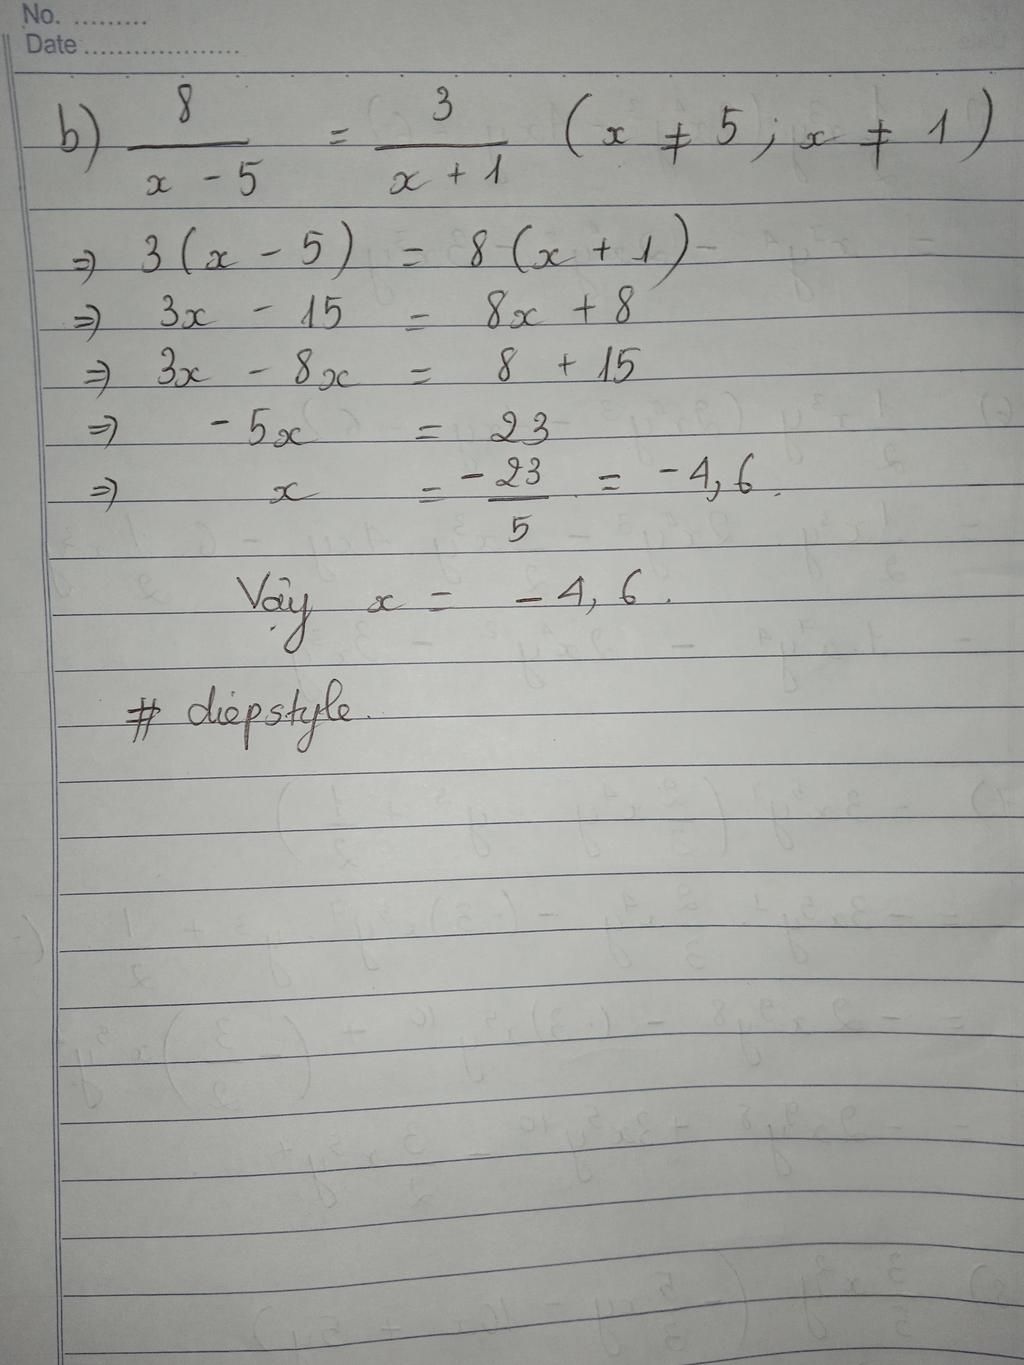 No. .........
Date ...................
b) 8/(x - 5) = 3/(x + 1) (x ≠ 5; x ≠ 1)
⇒ 3(x - 5) = 8(x + 1)
⇒ 3x - 15 = 8x + 8
⇒ 3x - 8x = 8 + 15
⇒ -5x = 23
⇒ x = -23/5 = -4,6.
Vậy x = -4,6.
# diệpstyle.